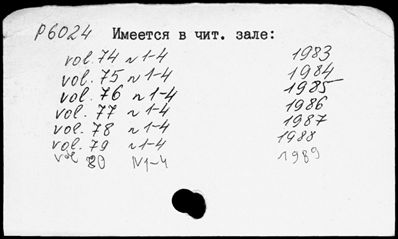 P6024 Имеется в чит. зале:
vol. 74 n 1-4 1983
vol. 75 n 1-4 1984
vol. 76 n 1-4 1985
vol. 77 n 1-4 1986
vol. 78 n 1-4 1987
vol. 79 n 1-4 1988
vol 80 N1-4 1989